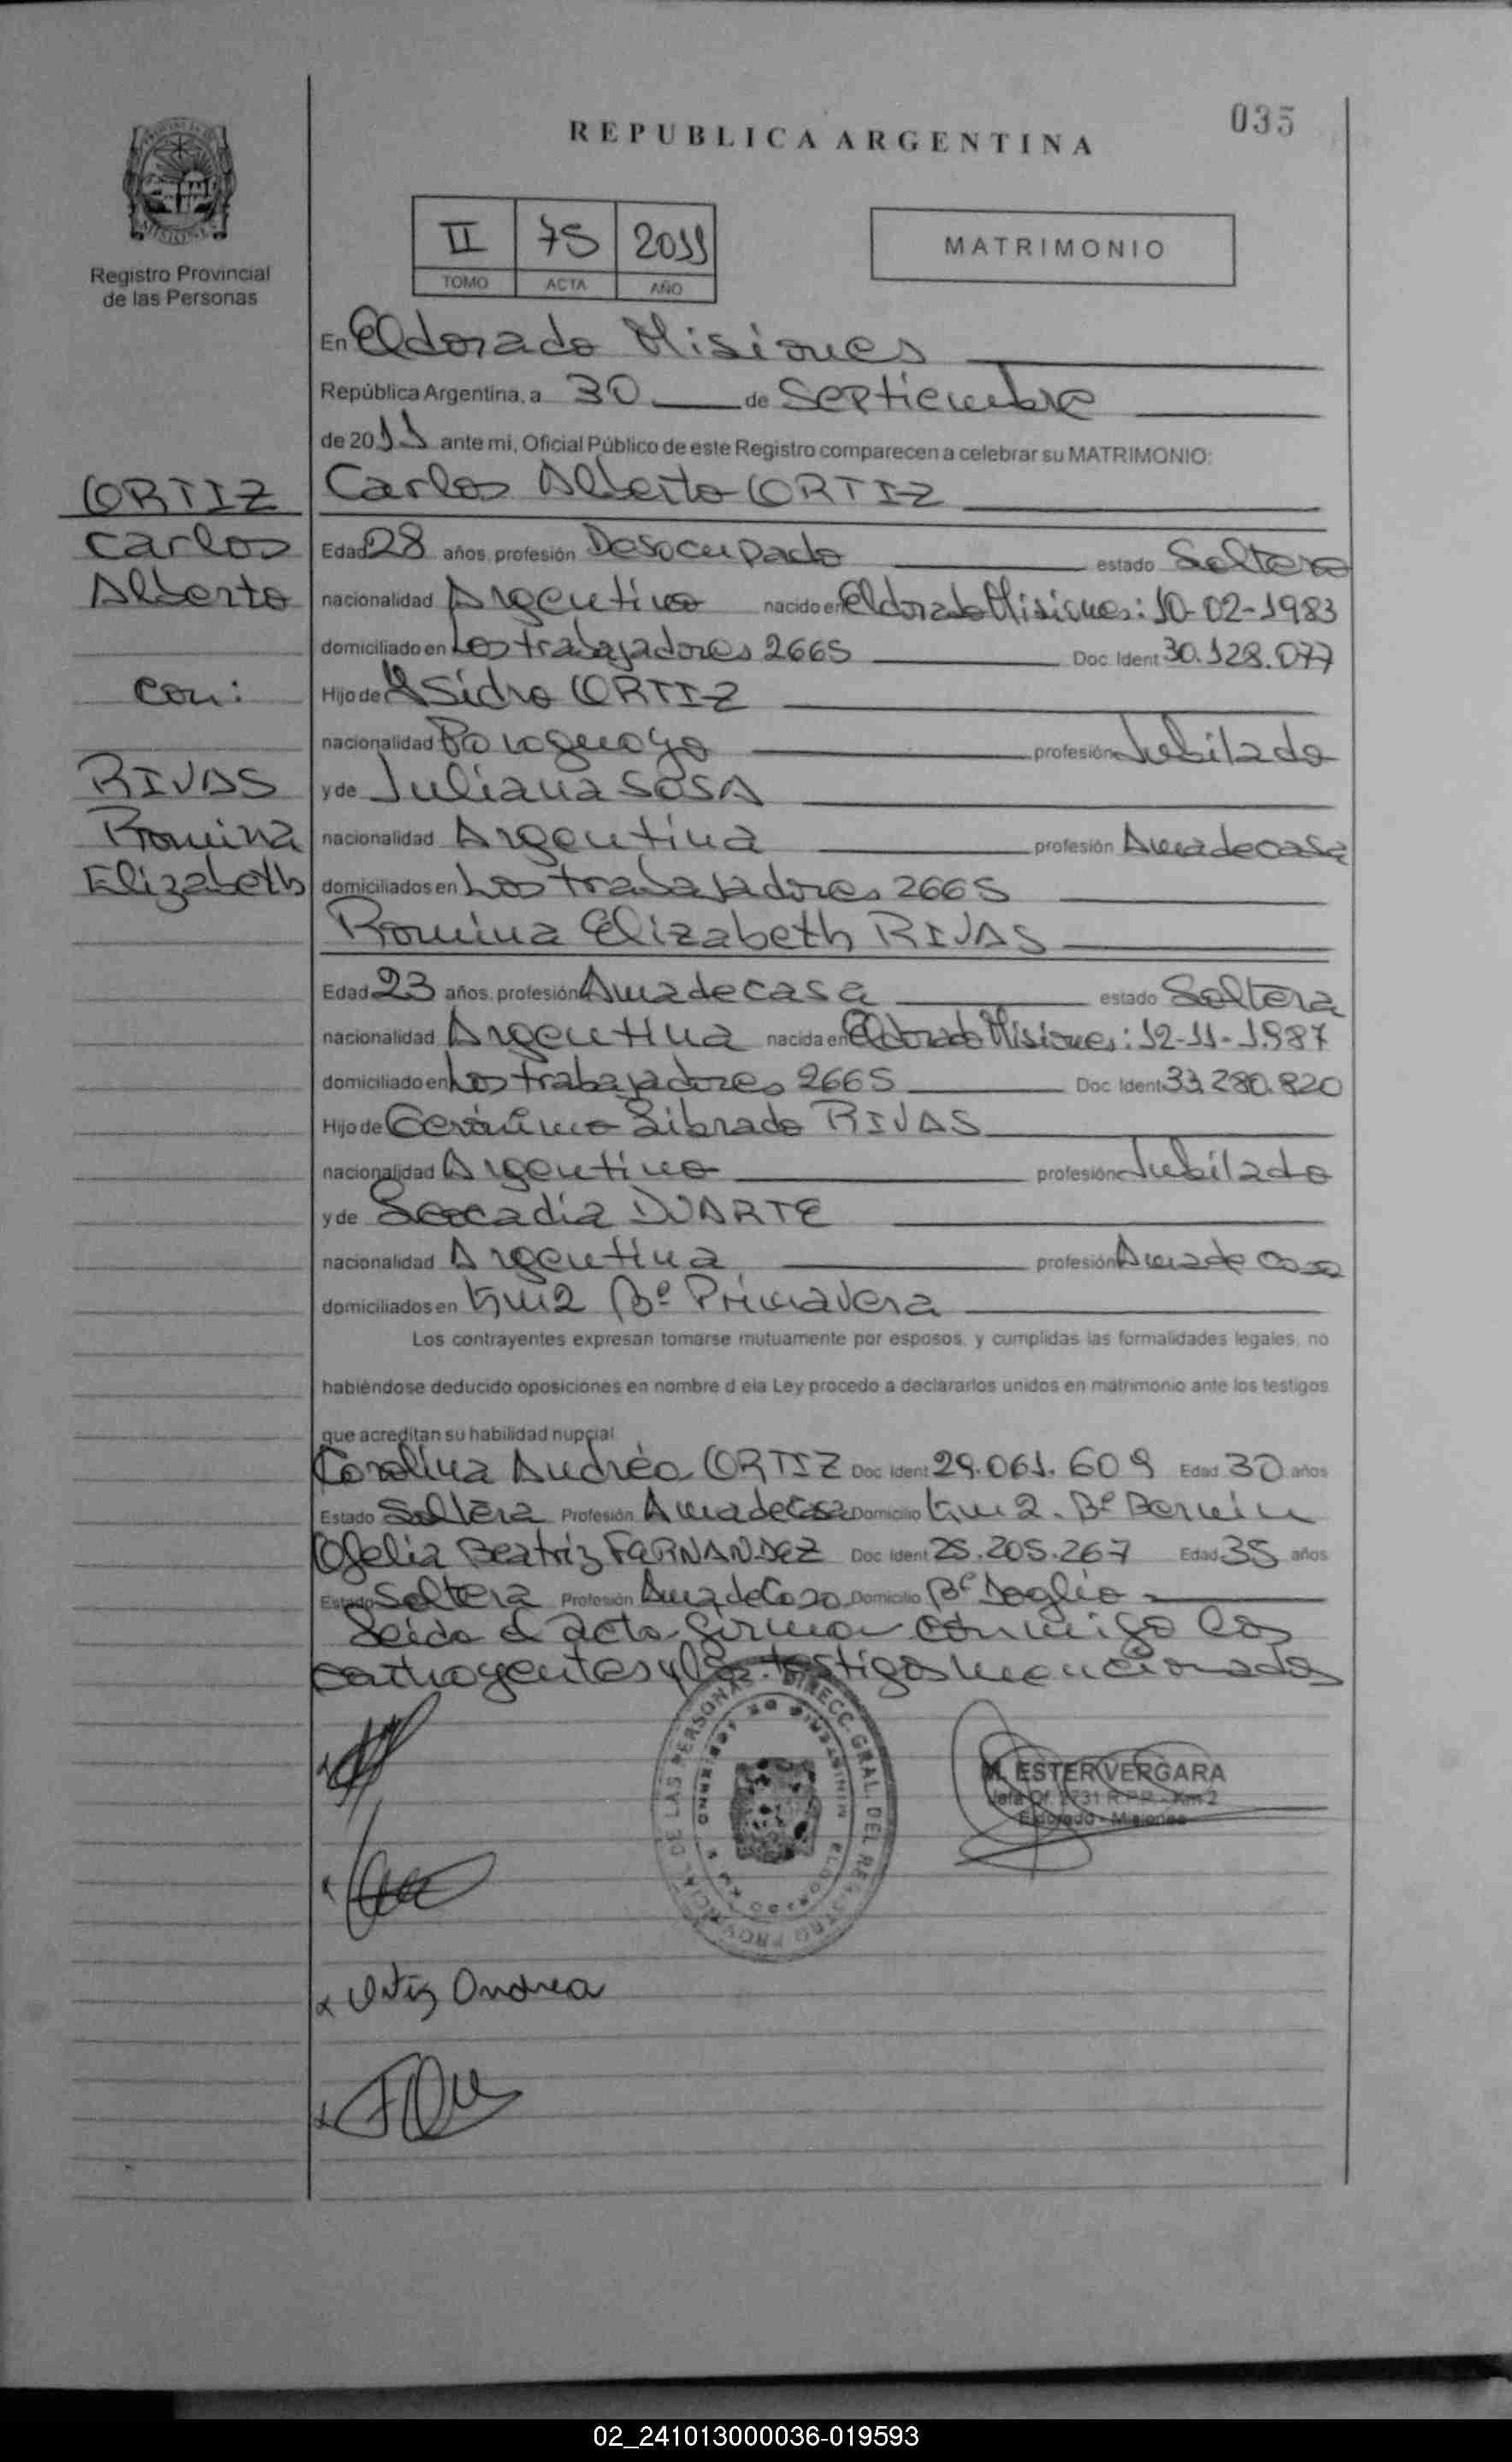 035
REPUBLICA ARGENTINA
II 75 2011
TOMO ACTA AÑO
MATRIMONIO
Registro Provincial
de las Personas
En Eldorado Misiones
República Argentina, a 30 de Septiembre
de 2011 ante mi, Oficial Público de este Registro comparecen a celebrar su MATRIMONIO:
ORTIZ
Carlos
Alberto
con:
RIVAS
Romina
Elizabeth
Carlos Alberto ORTIZ
Edad 28 años, profesión Desocupado estado Soltero
nacionalidad Argentino nacido en Eldorado Misiones: 10-02-1983
domiciliado en Los trabajadores 2665 Doc. Ident 30.128.077
Hijo de Isidro ORTIZ
nacionalidad Paraguayo profesión Jubilado
y de Juliana SOSA
nacionalidad Argentina profesión Ama de casa
domiciliados en Los trabajadores 2665
Romina Elizabeth RIVAS
Edad 23 años, profesión Ama de casa estado Soltera
nacionalidad Argentina nacida en Eldorado Misiones: 12-11-1987
domiciliado en Los trabajadores 2665 Doc. Ident 33.280.820
Hijo de Gerónimo Librado RIVAS
nacionalidad Argentino profesión Jubilado
y de Leocadia DUARTE
nacionalidad Argentina profesión Ama de Casa
domiciliados en Km 2 Bº Primavera
Los contrayentes expresan tomarse mutuamente por esposos, y cumplidas las formalidades legales, no
habiéndose deducido oposiciones en nombre d ela Ley procedo a declararlos unidos en matrimonio ante los testigos
que acreditan su habilidad nupcial
Carolina Andréa ORTIZ Doc. Ident 29.061.609 Edad 30 años
Estado Soltera Profesión Ama de Casa Domicilio Km 2. Bº
Ofelia Beatriz FERNANDEZ Doc. Ident 25.205.267 Edad 35 años
Estado Soltera Profesión Ama de Casa Domicilio Bº Doglio
Leida el acta firman conmigo los
contrayentes y los testigos mencionados
DIRECC. GRAL. DEL REGISTRO PROVINCIAL DE LAS PERSONAS
M. ESTER VERGARA
Jefa Of. 2731 R.P.P. - Km 2
Eldorado - Misiones
Ortiz Andrea
02_241013000036-019593